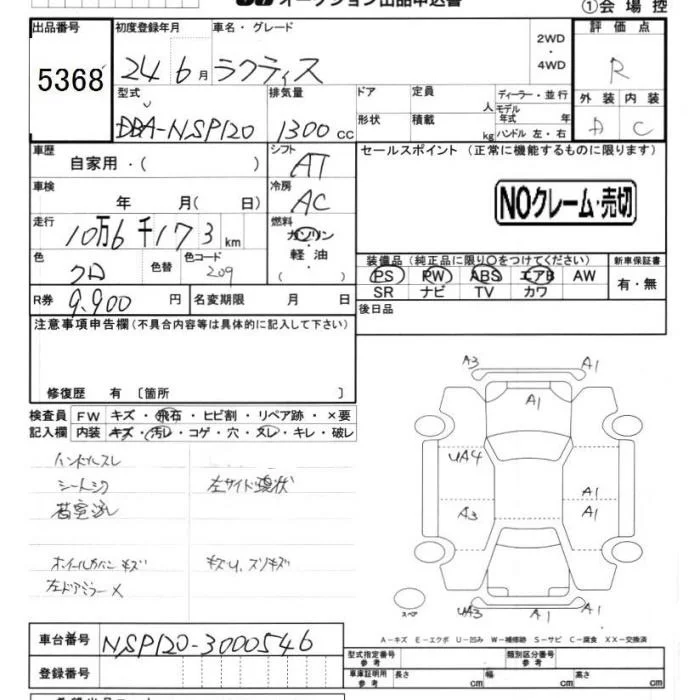 オークション出品申込書
①会場控
出品番号 初度登録年月 車名・グレード 2WD・4WD 評価点
5368 24 6月 ラクティス R
型式 排気量 ドア 定員 人 ディーラー・並行 外装 内装
DBA-NSP120 1300 cc 形状 積載 kg モデル年式 年 ハンドル 左・右 C
車歴 自家用・( ) シフト AT セールスポイント (正常に機能するものに限ります)
車検 年 月( 日) 冷房 AC
NOクレーム・売切
走行 10万6千173 km 燃料 ガソリン 軽油 ( )
色 クロ 色替 色コード 209
装備品 (純正品に限り○をつけてください) 新車保証書
PS PW ABS エアB AW 有・無
SR ナビ TV カワ
R券 9,900 円 名変期限 月 日 後日品
注意事項申告欄 (不具合内容等は具体的に記入して下さい)
修復歴 有 〔箇所 〕
検査員 FW キズ・飛石・ヒビ割・リペア跡・×要
記入欄 内装 キズ・汚レ・コゲ・穴・スレ・キレ・破レ
ハンドルスレ
シートシワ 左サイド現状
荷室汚レ
ホイールカバーキズ キズU、スリキズ
左ドアミラーX
A3 A1
A1
UA4
A1
A3 A1
スペア
UA3 A1 A1
A-キズ E-エクボ U-凹み W-補修跡 S-サビ C-腐食 XX-交換済
車台番号 NSP120-3000546
型式指定番号 参考 類別区分番号 参考
登録番号 車庫証明用 参考 長さ cm 幅 cm 高さ cm